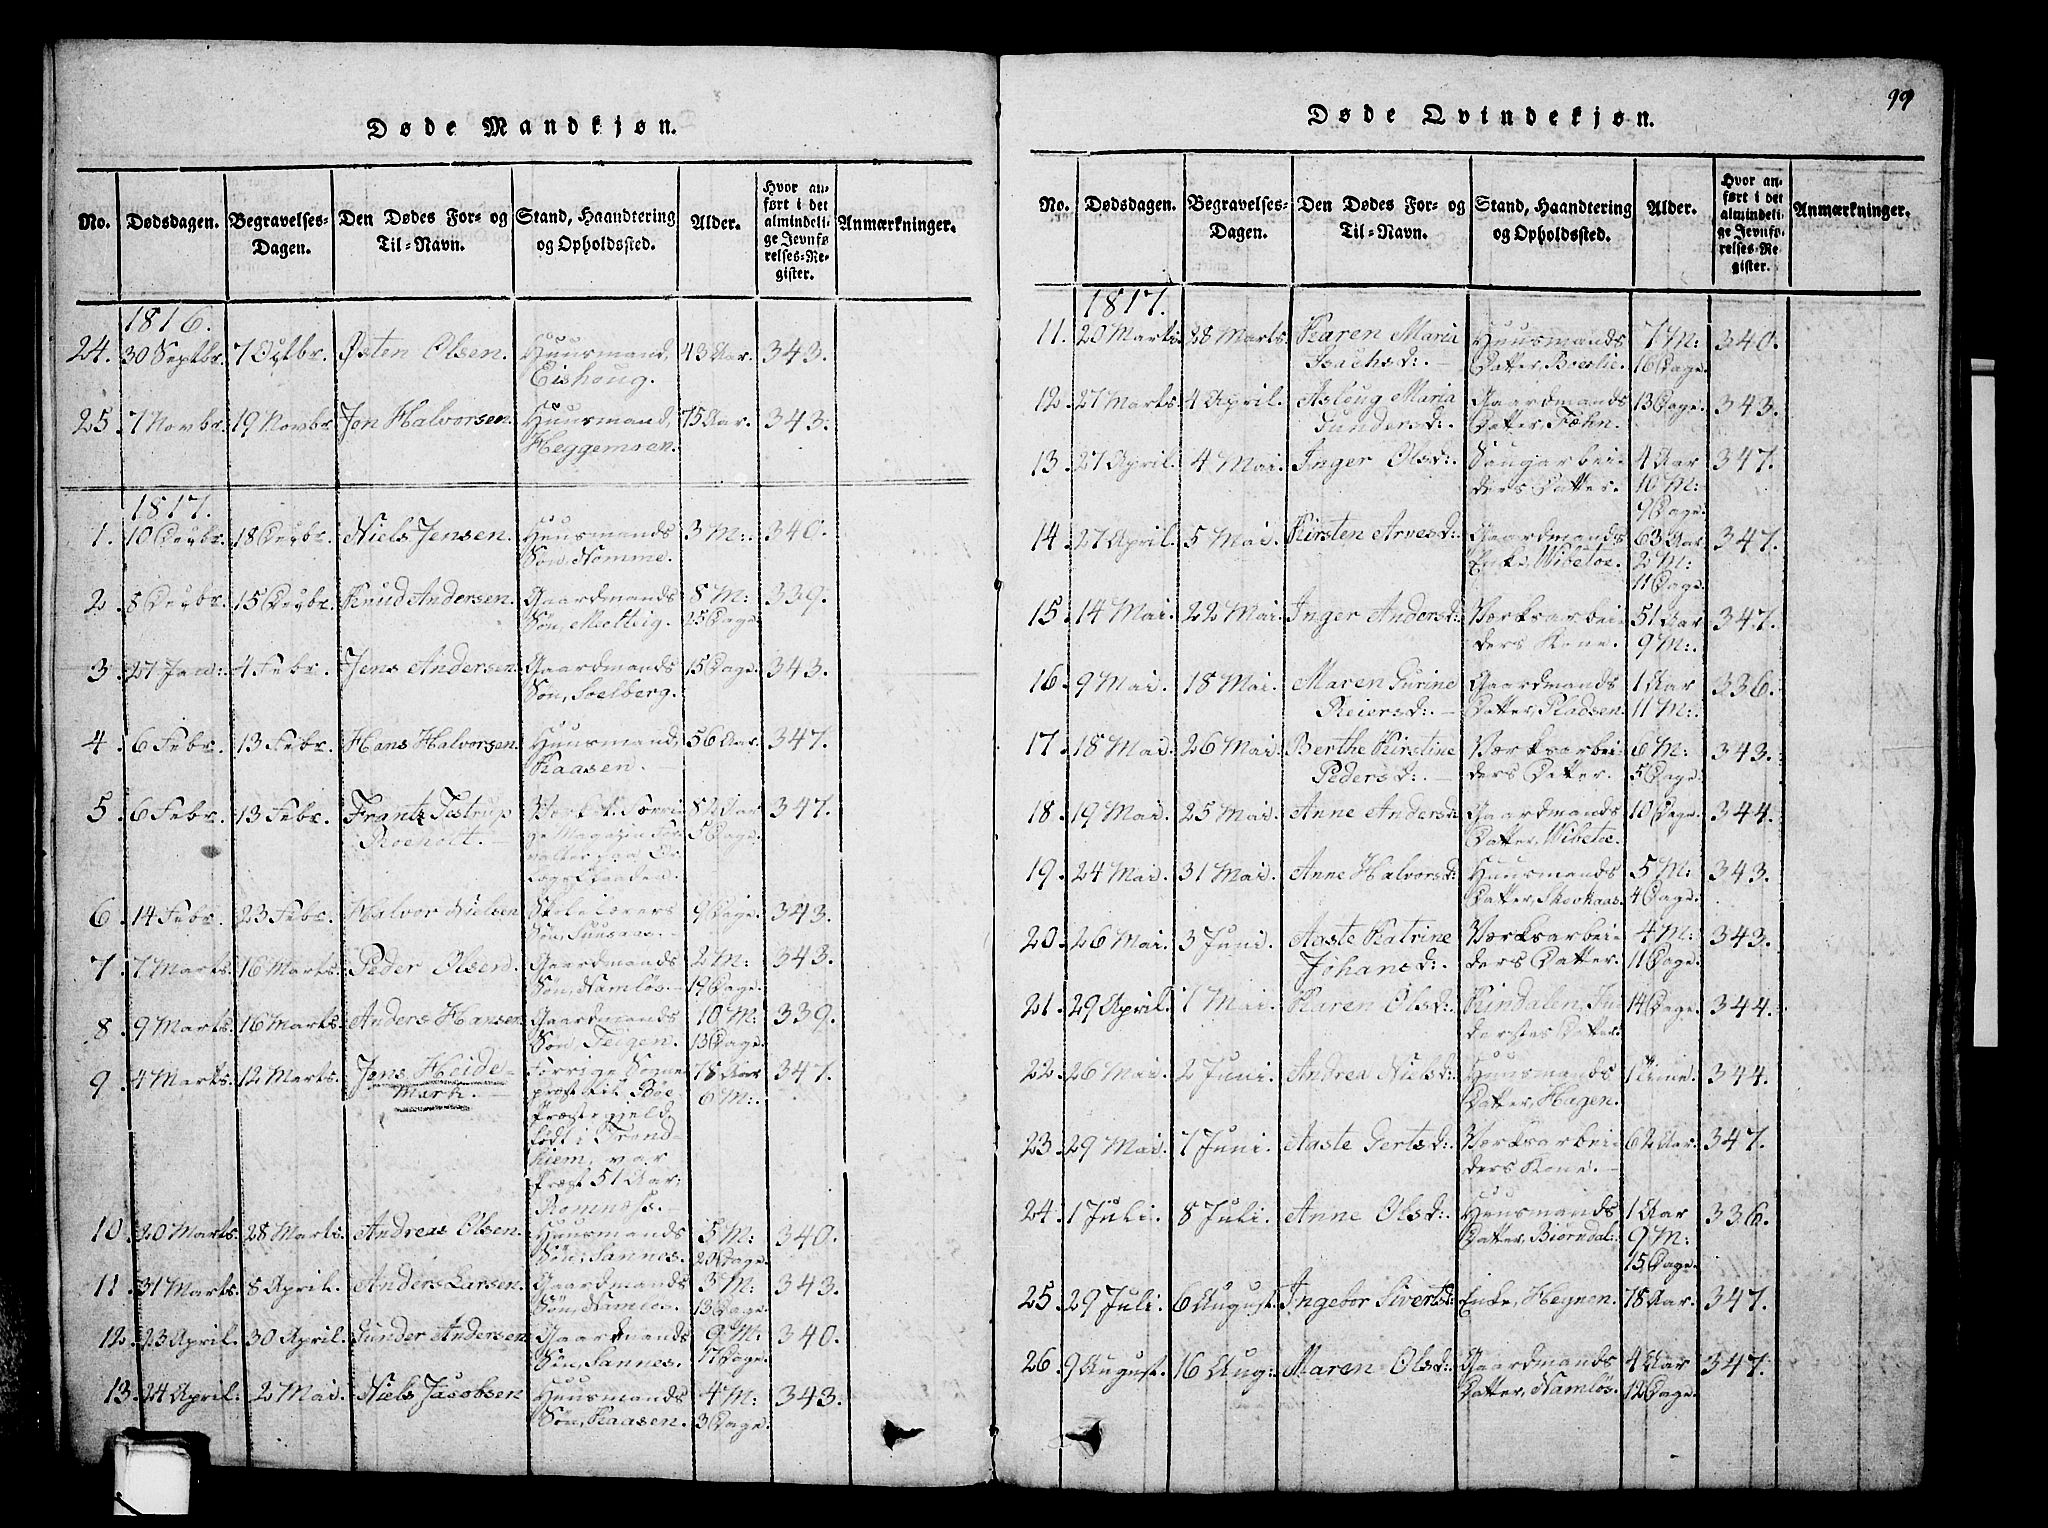 99
Døde Mandkjøn.
No. Dødsdagen. Begravelses-Dagen. Den Dødes For- og Til-Navn. Stand, Haandtering og Opholdssted. Alder. Hvor anført i det almindelige Jevnførelses-Register. Anmærkninger.
1816.
24. 30 Septbr. 7 Octbr. Østen Olsen. Huusmand, 43 Aar. 343.
Eishoug.
25. 7 Novbr. 19 Novbr. Jon Halvorsen. Huusmand, 75 Aar. 343.
Heggemsen.
1817.
1. 10 Decbr. 18 Decbr. Niels Jensen. Huusmands 3 M: 340.
Søn, Nomme.
2. 8 Decbr. 15 Decbr. Knud Andersen. Gaardmands 8 M: 339.
Søn, Melteig. 25 Dage.
3. 27 Jan: 4 Febr. Jens Andersen. Gaardmands 15 Dage. 343.
Søn, Solberg.
4. 6 Febr. 13 Febr. Hans Halvorsen. Huusmand, 56 Aar. 347.
Kaasen.
5. 6 Febr. 13 Febr. Frantz Testrup 82 Aar 347.
Roeholt. 5 Dage.
6. 14 Febr. 23 Febr. Halvor Nielsen Skolelærers 9 Dage. 343.
Søn,
7. 7 Marts. 16 Marts. Peder Olsen. Gaardmands 2 M: 343.
Søn, Namløs. 19 Dage.
8. 9 Marts. 16 Marts. Anders Hansen Gaardmands 10 M: 339.
Søn, Teigen. 13 Dage.
9. 4 Marts. 12 Marts. Jens Heide- Forrige Sogne 78 Aar 347.
mark. præst til Bøe 6 M:
Præstegjeld,
født i Trond-
hiem, var
Præst 51 Aar:
Romnæss.
10. 20 Marts. 28 Marts. Andreas Olsen. Huusmands 5 M: 340.
Søn, Sannes. 20 Dage.
11. 31 Marts. 8 April. Anders Larsen. Gaardmands 3 M: 343.
Søn, Namløs. 13 Dage.
12. 23 April. 30 April. Gunder Andersen. Gaardmands 9 M: 340.
Søn, Sannes. 17 Dage.
13. 24 April. 2 Mai. Niels Jacobsen Huusmands 4 M: 343.
Søn, Kaasen. 3 Dage.
Døde Qvindekjøn.
No. Dødsdagen. Begravelses-Dagen. Den Dødes For- og Til-Navn. Stand, Haandtering og Opholdssted. Alder. Hvor anført i det almindelige Jevnførelses-Register. Anmærkninger.
1817.
11. 20 Marts 28 Marts. Karen Maria Huusmands 7 M: 340.
Isachsd: Datter, Boerlie. 16 Dage.
12. 27 Marts. 4 April. Asloug Maria Gaardmands 13 Dage. 343.
Gundersd: Datter, Fæhn.
13. 27 April. 4 Mai. Inger Olsd: Saugarbei- 4 Aar 347.
ders Datter. 10 M:
9 Dage.
14. 27 April. 5 Mai. Kirsten Arnesd: Gaardmands 63 Aar 347.
Enke, Wibetoe. 2 M:
11 Dage.
15. 14 Mai. 22 Mai. Inger Andersd: Værksarbei- 51 Aar 347.
ders Kone. 9 M:
16. 9 Mai. 18 Mai. Maren Gurine Gaardmands 1 Aar 336.
Reiersd: Datter, Pladsen. 11 M:
17. 18 Mai. 26 Mai. Berthe Kirstine Værksarbei- 6 M: 343.
Pedersd: ders Datter. 5 Dage.
18. 19 Mai. 25 Mai. Anne Andersd: Gaardmands 10 Dage. 344.
Datter, Wibetoe.
19. 24 Mai. 31 Mai. Anne Halvorsd: Huusmands 5 M: 343.
Datter, Skovkaas. 4 Dage.
20. 26 Mai. 3 Juni. Aaste Katrine Værksarbei- 4 M: 343.
Johansd: ders Datter. 11 Dage.
21. 29 April. 7 Mai. Karen Olsd: Heindalen, In- 14 Dage. 344.
derstes Datter.
22. 26 Mai. 2 Juni. Andrea Nielsd: Huusmands 1 Time. 344.
Datter, Hagen.
23. 29 Mai. 7 Juni. Aaste Gertsd: Værksarbei- 62 Aar. 347.
ders Kone.
24. 1 Juli. 8 Juli. Anne Olsd: Huusmands 1 Aar 336.
Datter, Biørndal: 9 M:
15 Dage.
25. 29 Juli. 6 August. Ingebor Sivertsd: Enke, Hegnen. 78 Aar. 347.
26. 9 August. 16 Aug: Maren Olsd: Gaardmands 4 Aar 347.
Datter, Namløs. 12 Dage.